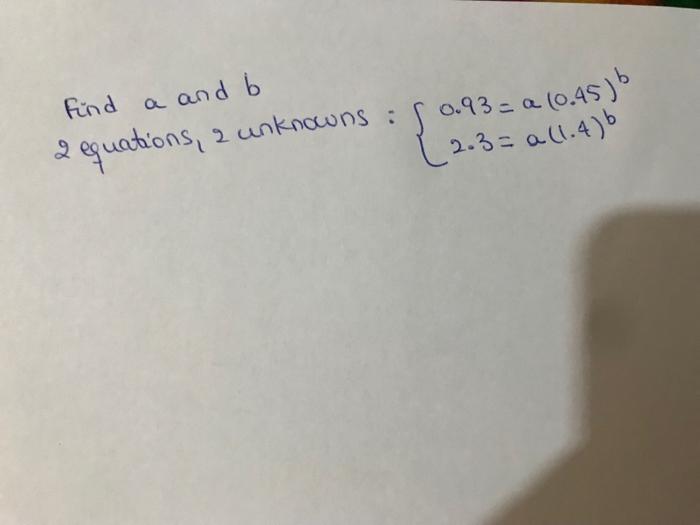 Find a and b
2 equations, 2 unknowns : { 0.93 = a (0.45)^b
2.3 = a (1.4)^b